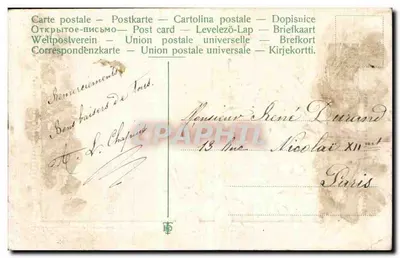 Carte postale – Postkarte – Cartolina postale – Dopisnice
Открытое-письмо – Post card – Levelező-Lap – Briefkaart
Weltpostverein – Union postale universelle – Brefkort
Correspondenzkarte – Union postale universale – Kirjekortti.
Remerciements
Bons baisers de tous
Monsieur René Durand
13 Rue Nicolaï XIImt
Paris